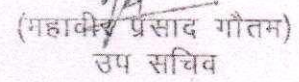 (महावीर प्रसाद गौतम)
उप सचिव